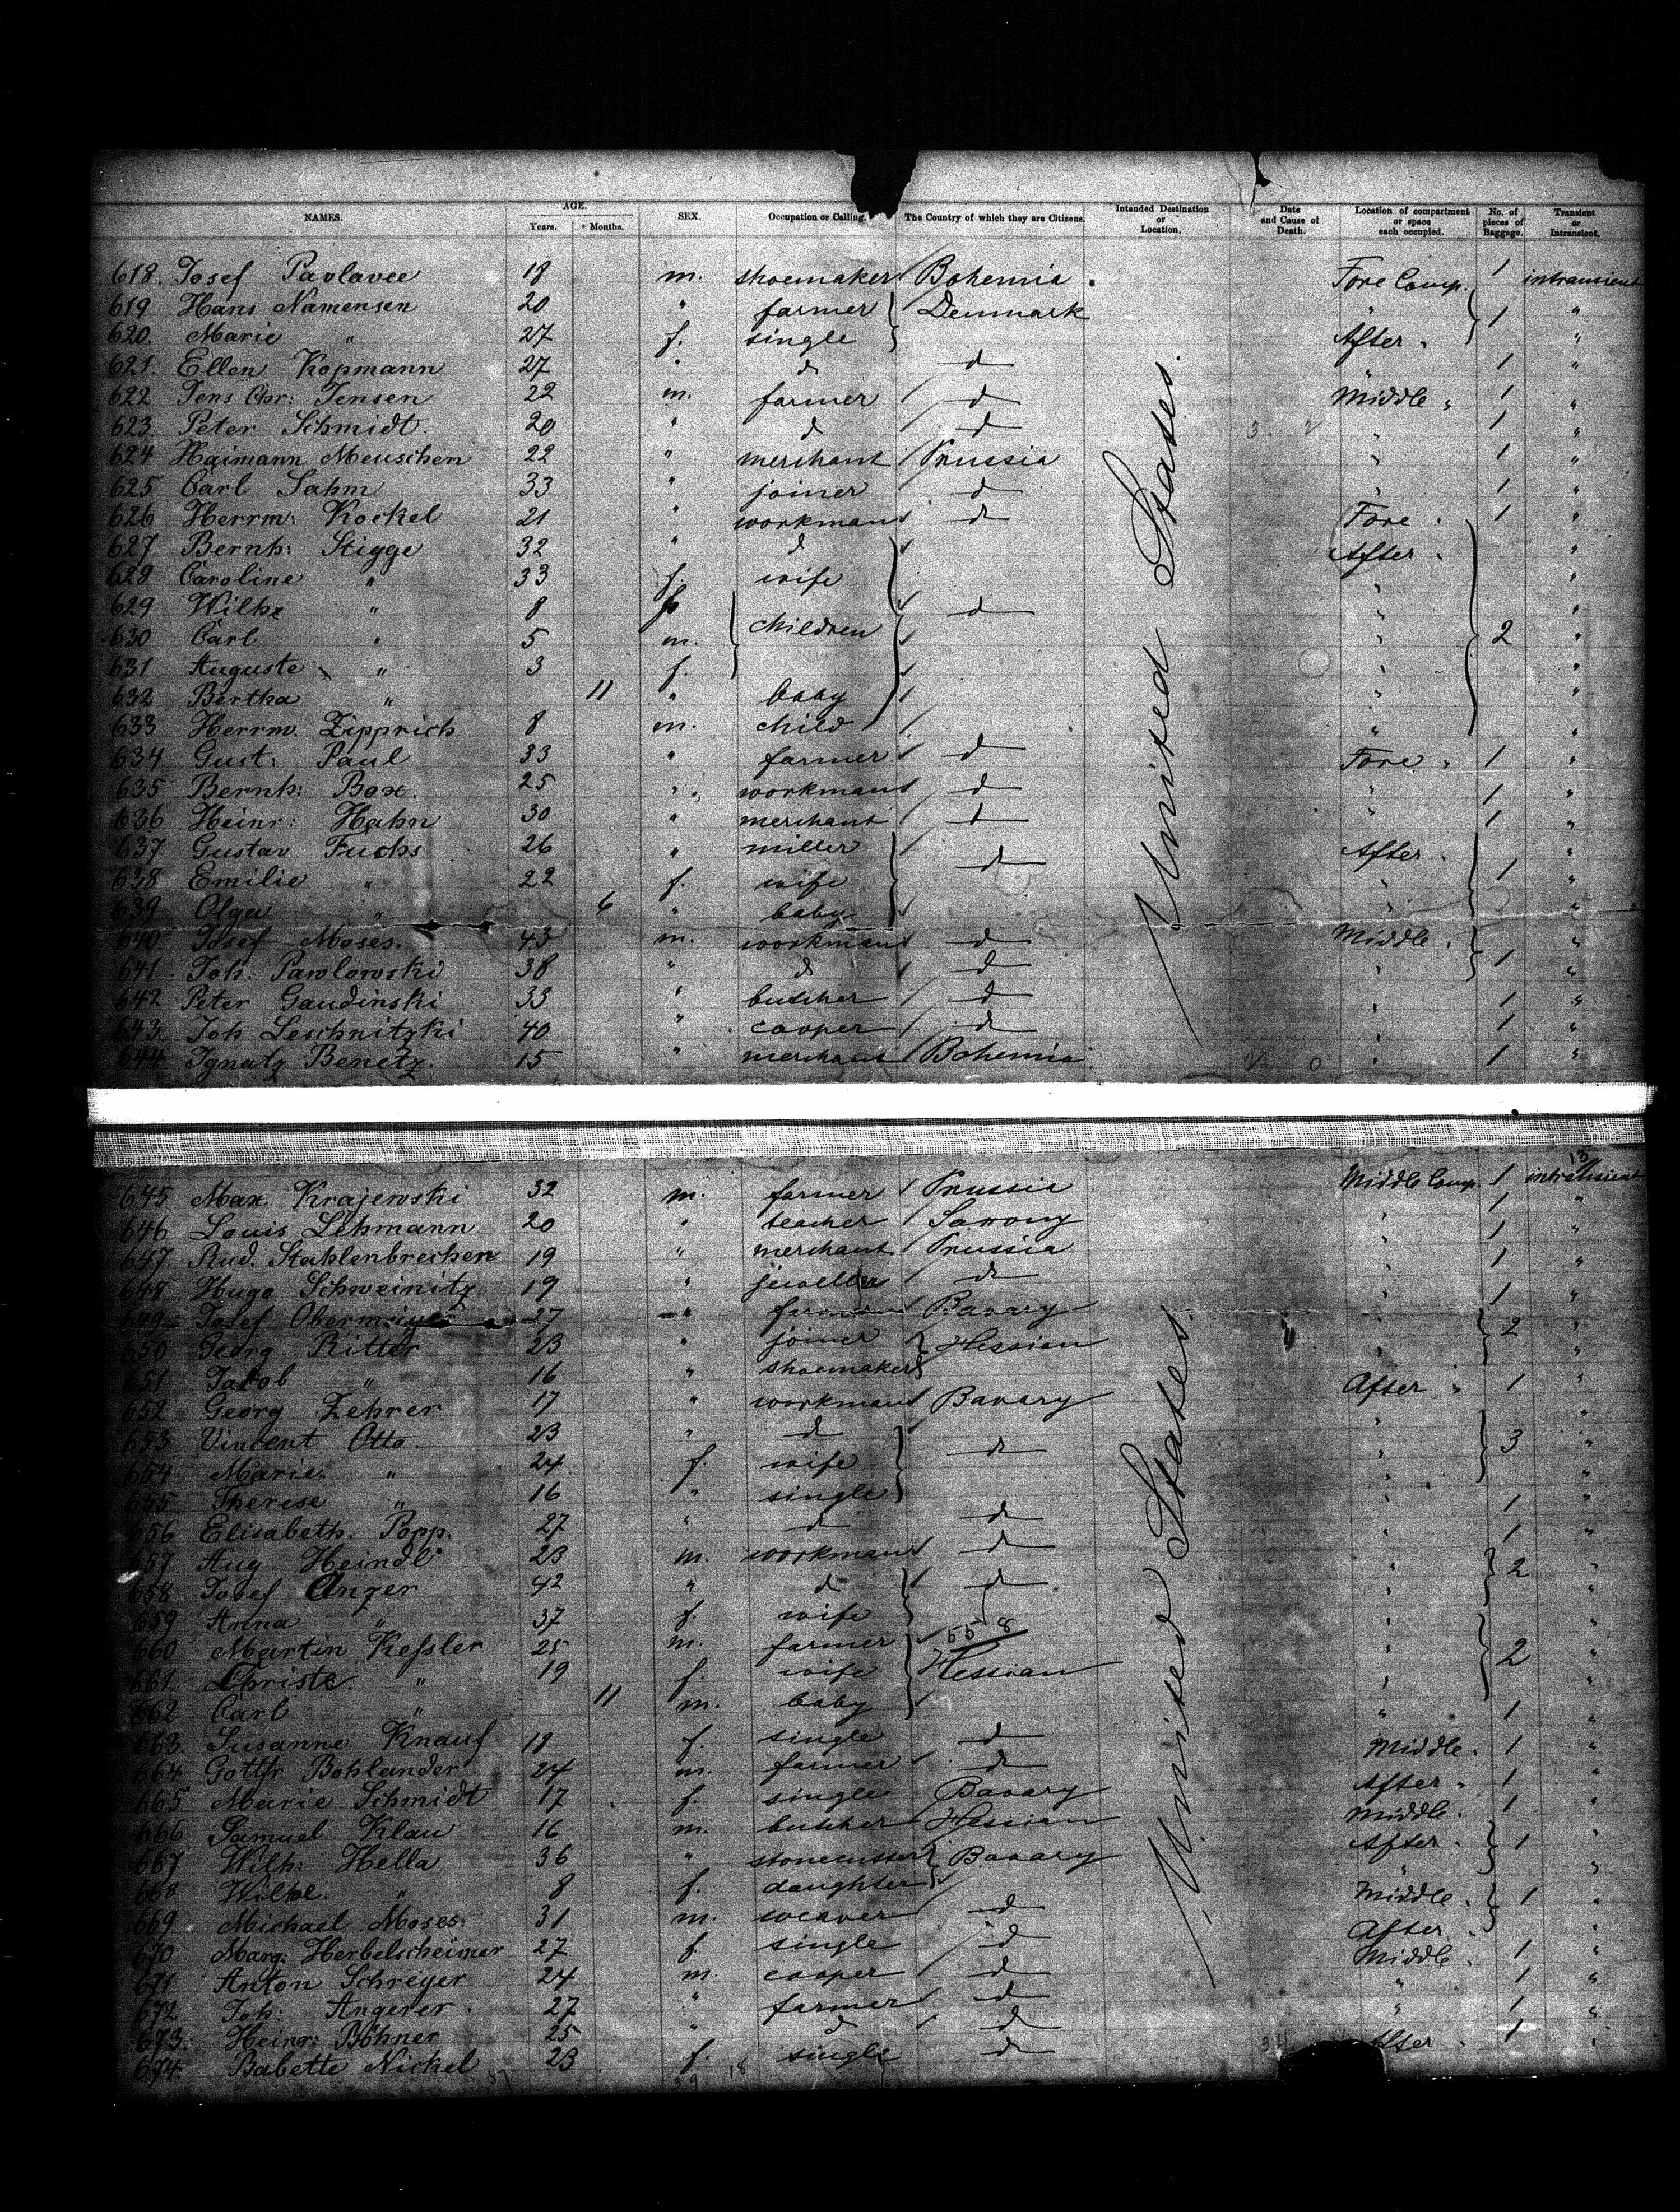 NAMES. AGE. Years. Months. SEX. Occupation or Calling. The Country of which they are Citizens. Intended Destination or Location. Date and Cause of Death. Location of compartment or space each occupied. No. of pieces of Baggage. Transient or Intransient.
618. Josef Pavlavee 18 m. shoemaker Bohemia. Fore Comp. 1 intransient
619 Hans Namensen 20 " farmer Denmark " 1 "
620. Marie " 27 f. single After " "
621. Ellen Kopmann 27 " d d " 1 "
622 Jens Chr: Jensen 22 m. farmer d Middle " 1 "
623. Peter Schmidt. 20 " d d " 1 "
624 Haimann Meuschen 22 " merchant Prussia " 1 "
625 Carl Sahm 33 " joiner d " 1 "
626 Herrm: Kockel 21 " workman d Fore " 1 "
627 Bernh: Stigge 32 " d After " "
628 Caroline " 33 f. wife " "
629 Wilhe " 8 f children d " "
630 Carl " 5 m. " 2 "
631 Auguste " 3 f. " "
632 Bertha " 11 " baby " "
633 Herrm. Zipprich 8 m. child " "
634 Gust: Paul 33 " farmer d Fore " 1 "
635 Bernh: Box. 25 " workman d " 1 "
636 Heinr: Hahn 30 " merchant d " 1 "
637 Gustav Fuchs 26 " miller d After " "
638 Emilie " 22 f. wife " 1 "
639 Olga " 6 " baby " "
640 Josef Moses. 43 m. workman d Middle " "
641. Joh. Pawlowski 38 " d d " 1 "
642 Peter Gaudinski 33 " butcher d " 1 "
643. Joh Leschnitzki 40 " cooper d " 1 "
644 Ignatz Benetz. 15 " merchant Bohemia " 1 "
United States.
13
645 Max Krajewski 32 m. farmer Prussia Middle Comp. 1 intransient
646 Louis Lehmann 20 " teacher Saxony " 1 "
647. Rud. Stahlenbrechen 19 " merchant Prussia " 1 "
648 Hugo Schweinitz 19 " jeweller d " 1 "
649 Josef 27 " farmer Bavary " 1 "
650 Georg Ritter 23 " joiner Hessian " 2 "
651 Jacob " 16 " shoemaker " "
652 Georg Zehrer 17 " workman Bavary After " 1 "
653 Vincent Otto. 23 " d d " "
654 Marie " 24 f. wife " 3 "
655 Therese " 16 " single " "
656 Elisabeth. Popp. 27 " d d " 1 "
657 Aug Heindl 23 m. workman d " 1 "
658 Josef Anzer 42 " d d " 2 "
659 Anna " 37 f. wife " "
660 Martin Keſsler 25 m. farmer 55 8 " "
661. Christe. " 19 f. wife Hessian " 2 "
662 Carl " 11 m. baby " "
663. Susanne Knauf 18 f. single d " 1 "
664 Gottfr Bohlander 24 m. farmer d Middle " 1 "
665 Marie Schmidt 17 f. single Bavary After " 1 "
666 Samuel Klau 16 m. butcher Hessian Middle " 1 "
667 Wilh: Hella 36 " stonecutter Bavary After " 1 "
668 Wilhe. " 8 f. daughter " "
669 Michael Moses. 31 m. weaver d Middle " 1 "
670 Marg: Herbelscheimer 27 f. single d After " "
671 Anton Schreyer 24 m. cooper d Middle " 1 "
672 Joh: Angerer. 27 " farmer d " 1 "
673. Heinr: Böhner 25 " d d " 1 "
674. Babette Nickel 23 f. single d After " 1 "
United States.